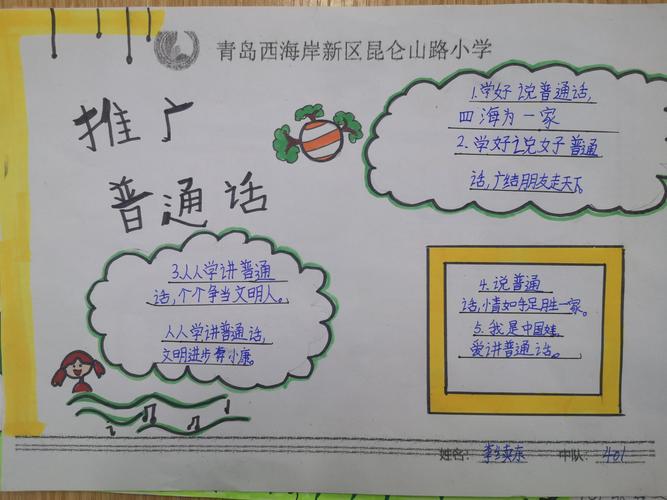 青岛西海岸新区昆仑山路小学
推广
普通话
1.学好说普通话,
四海为一家
2.学好说好普通
话,广结朋友走天下
3.人人学讲普通
话,个个争当文明人。
人人学讲普通话,
文明进步奔小康。
4.说普通
话,情如手足胜一家。
5.我是中国娃,
爱讲普通话。
姓名: 李续东 中队: 401